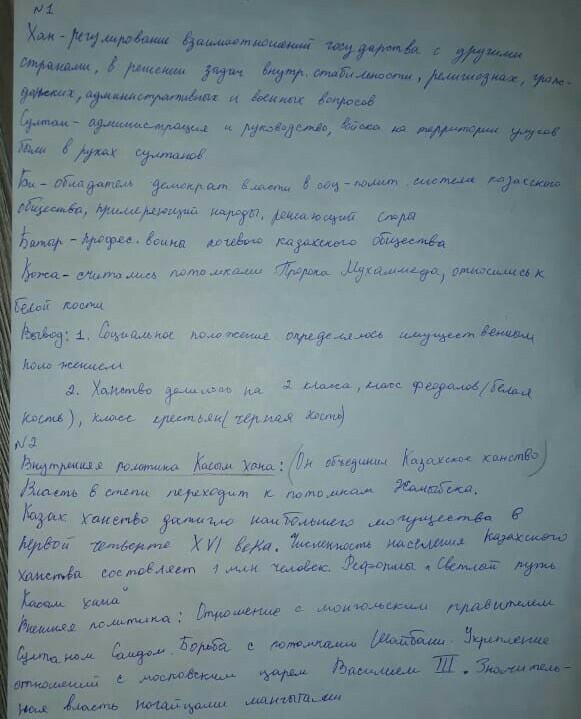 №1
Хан - регулирование взаимоотношений государства с другими
странами, в решении задач внутр. стабильности, религиозных, граж-
данских, административных и военных вопросов
Султан - администрация и руководство, войска на территории улусов
были в руках султанов
Би - обладатель демократ. власти в соц-полит. системе казахского
общества, примеряющий народы, решающий споры
Батыр - профес. воины кочевого казахского общества
Кожа - считались потомками Пророка Мухаммеда, относились к
белой кости
Вывод: 1. Социальное положение определялось имущественным
положением
2. Ханство делилось на 2 класса, класс феодалов (белая
кость), класс крестьян (черная кость)
№2
Внутренняя политика Касым хана: (Он объединил Казахское ханство)
Власть в степи переходит к потомкам Жаныбека.
Казах ханство датигло наибольшего могущества в
первой четверте XVI века. Численность населения Казахского
ханства составляет 1 млн человек. Реформы "Светлой путь
Касым хана"
Внешняя политика: Отрошение с монгольским правителем
Султаном Саидом. Борьба с потомками Шайбани. Укрепление
отношений с московским царем Василием III. Значитель-
ная власть ногайцами мангытами